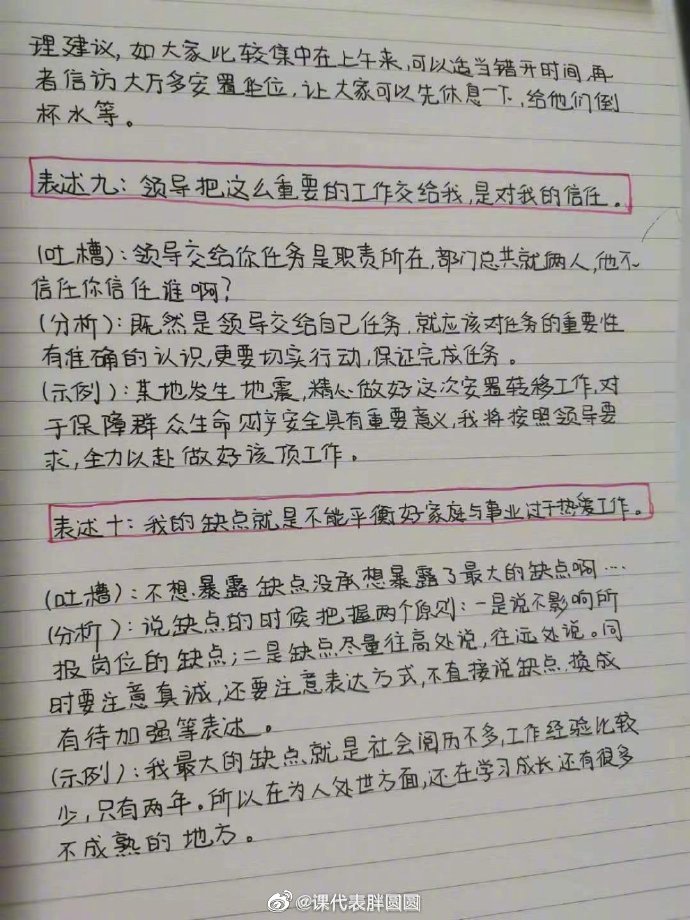 理建议，如大家比较集中在上午来，可以适当错开时间，再
者信访大厅多安置座位，让大家可以先休息一下，给他们倒
杯水等。
表述九：领导把这么重要的工作交给我，是对我的信任。
(吐槽)：领导交给你任务是职责所在，部门总共就俩人，他不
信任你信任谁啊？
(分析)：既然是领导交给自己任务，就应该对任务的重要性
有准确的认识，更要切实行动，保证完成任务。
(示例)：某地发生地震，精心做好这次安置转移工作，对
于保障群众生命财产安全具有重要意义，我将按照领导要
求，全力以赴做好该项工作。
表述十：我的缺点就是不能平衡好家庭与事业过于热爱工作。
(吐槽)：不想暴露缺点没承想暴露了最大的缺点啊…
(分析)：说缺点的时候把握两个原则：一是说不影响所
报岗位的缺点；二是缺点尽量往高处说，往远处说。同
时要注意真诚，还要注意表达方式，不直接说缺点，换成
有待加强等表述。
(示例)：我最大的缺点就是社会阅历不多，工作经验比较
少，只有两年。所以在为人处世方面，还在学习成长还有很多
不成熟的地方。
@课代表胖圆圆